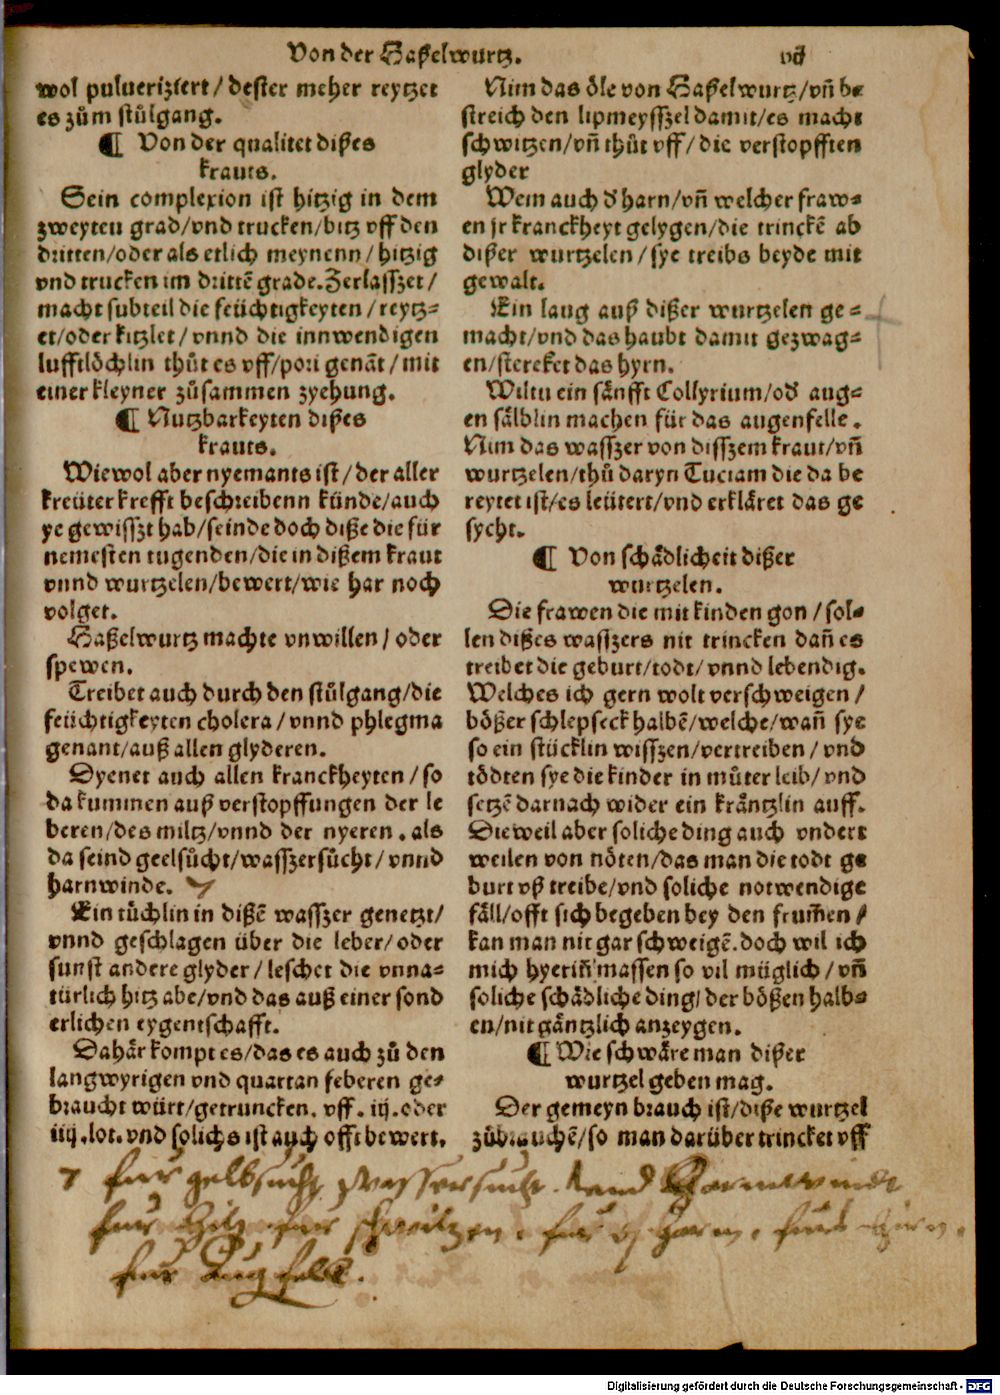 Von der Haßelwurtz.
wol pulueriziert/ dester meher reytzet
es zům stůlgang.
¶ Von der qualitet dißes
krauts.
Sein complexion ist hitzig in dem
zweyten grad/vnd trucken/bitz vff den
dritten/oder als etlich meynenn/ hitzig
vnd trucken im drittē grade. Zerlasszet/
macht subteil die feüchtigkeyten/ reytz⸗
et/oder kitzlet/ vnnd die innwendigen
lufftlöchlin thůt es vff/pori genāt/ mit
einer kleyner zůsammen zyehung.
¶ Nutzbarkeyten dißes
krauts.
Wiewol aber nyemants ist/ der aller
kreüter krefft beschreibenn künde/auch
ye gewisszt hab/seinde doch diße die für
nemesten tugenden/die in dißem kraut
vnnd wurtzelen/bewert/wie har noch
volget.
Haßelwurtz machte vnwillen/ oder
spewen.
Treibet auch durch den stůlgang/die
feüchtigkeyten cholera/ vnnd phlegma
genant/auß allen glyderen.
Dyenet auch allen kranckheyten/ so
da kummen auß verstopffungen der le
beren/des miltz/vnnd der nyeren. als
da seind geelsücht/wasszersücht/ vnnd
harnwinde.
Ein tüchlin in dißē wasszer genetzt/
vnnd geschlagen über die leber/ oder
sunst andere glyder/ leschet die vnna⸗
türlich hitz abe/vnd das auß einer sond
erlichen eygentschafft.
Dahär kompt es/das es auch zů den
langwyrigen vnd quartan feberen ge⸗
braucht würt/getruncken. vff. iij. oder
iiij. lot. vnd solichs ist auch offt bewert.
Nim das öle von Haßelwurtz/vn̄ be
streich den lipmeysszel damit/es macht
schwitzen/vn̄ thůt vff/ die verstopfften
glyder
Wem auch d' harn/vn̄ welcher fraw⸗
en jr kranckheyt gelygen/die trinckē ab
dißer wurtzelen/ sye treibs beyde mit
gewalt.
Ein laug auß dißer wurtzelen ge⸗
macht/vnd das haubt damit gezwag⸗
en/stercket das hyrn.
Wiltu ein sänfft Collyrium/od' aug⸗
en sälblin machen für das augenfelle.
Nim das wasszer von disszem kraut/vn̄
wurtzelen/thů daryn Tuciam die da be
reytet ist/es leütert/vnd erkläret das ge
sycht.
¶ Von schädlicheit dißer
wurtzelen.
Die frawen die mit kinden gon/ sol⸗
len dißes wasszers nit trincken dan̄ es
treibet die geburt/todt/vnnd lebendig.
Welches ich gern wolt verschweigen/
bößer schlepseck halbē/welche/wan̄ sye
so ein stücklin wisszen/vertreiben/ vnd
tödten sye die kinder in můter leib/ vnd
setzē darnach wider ein kräntzlin auff.
Dieweil aber soliche ding auch vndert
weilen von nöten/das man die todt ge
burt vß treibe/vnd soliche notwendige
fäll/offt sich begeben bey den frum̄en/
kan man nit gar schweigē. doch wil ich
mich hyerin̄ massen so vil müglich/ vn̄
soliche schädliche ding/ der bößen halb⸗
en/nit gäntzlich anzeygen.
¶ Wie schwäre man dißer
wurtzel geben mag.
Der gemeyn brauch ist/diße wurtzel
zůbrauchē/so man darüber trincket vff
fur gelbsucht wassersucht. vnd Harnwindt
fur hitz fur schwitzen. fur harn. fur hirn.
fur Augfell.
Digitalisierung gefördert durch die Deutsche Forschungsgemeinschaft - DFG